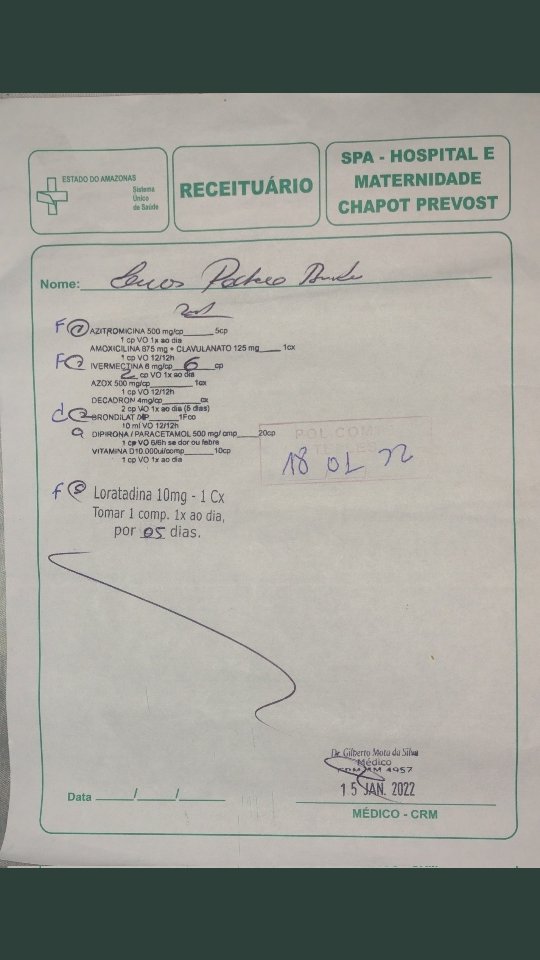 ESTADO DO AMAZONAS
Sistema
Único
de Saúde
RECEITUÁRIO
SPA - HOSPITAL E
MATERNIDADE
CHAPOT PREVOST
Nome: Pacheco
F AZITROMICINA 500 mg/cp 5cp
1 cp VO 1x ao dia
AMOXICILINA 875 mg + CLAVULANATO 125 mg 1cx
1 cp VO 12/12h
F IVERMECTINA 6 mg/cp 6 cp
2 cp VO 1x ao dia
AZOX 500 mg/cp 1cx
1 cp VO 12/12h
DECADRON 4mg/cp cx
2 cp VO 1x ao dia (5 dias)
BRONDILAT 1Fco
10 ml VO 12/12h
DIPIRONA / PARACETAMOL 500 mg/ amp 20cp
1 cp VO 6/6h se dor ou febre
VITAMINA D10.000ui/comp 10cp
1 cp VO 1x ao dia
18 01 22
F Loratadina 10mg - 1 Cx
Tomar 1 comp. 1x ao dia,
por 05 dias.
Dr. Gilberto Mota da Silva
Médico
CRM AM 4957
15 JAN. 2022
Data ___/___/___
MÉDICO - CRM